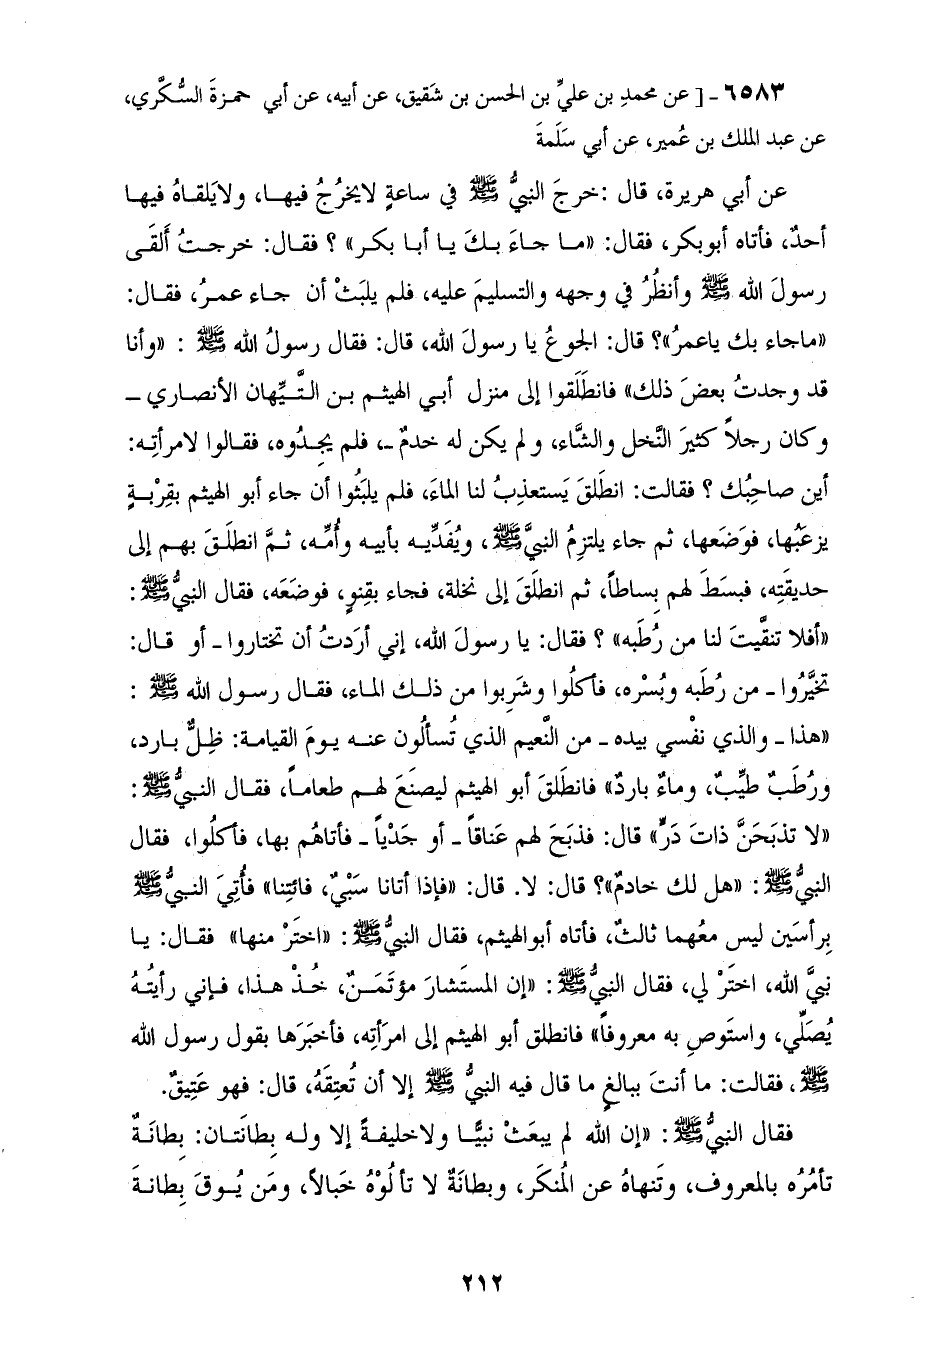 ٦٥٨٣ ـ [ عن محمدِ بن عليِّ بن الحسن بن شَقيق، عن أبيه، عن أبي حمزةَ السُّكَّري،
عن عبد الملك بن عُمير، عن أبي سَلَمةَ
عن أبي هريرة، قال : خرجَ النبيُّ ﷺ في ساعةٍ لايخرُجُ فيهـا، ولايَلقـاهُ فيهـا
أحدٌ، فأتاه أبوبكر، فقال: «مـا جـاءَ بـكَ يـا أبـا بكـر» ؟ فقـال: خرجـتُ أَلقَـى
رسولَ الله ﷺ وأنظُرُ في وجهه والتسليمَ عليه، فلم يلبَثْ أن جـاء عمـرُ، فقـال:
«ماجاء بك ياعمرُ»؟ قال: الجوعُ يا رسولَ الله، قال: فقال رسولُ الله ﷺ : «وأنا
قد وجدتُ بعضَ ذلك» فانطَلَقوا إلى منزل أبـي الهيثـم بـن التَّـيِّهان الأنصـاري ـ
وكان رجلاً كثيرَ النَّخل والشَّاء، ولم يكن له خدمٌ ـ، فلم يجِدُوه، فقـالوا لامرأتِـه:
أين صاحِبُك ؟ فقالت: انطلقَ يَستعذِبُ لنا الماءَ، فلم يلبَثُوا أن جاء أبو الهيثم بقِرْبـةٍ
يزعَبُها، فوَضَعها، ثم جاء يلتزِمُ النبيَّ ﷺ، ويُفَدِّيـه بأبيه وأُمِّه، ثـمَّ انطلَـقَ بهـم إلى
حديقَتِه، فبسَطَ لهم بِساطاً، ثم انطلَقَ إلى نخلة، فجاء بقِنوٍ، فوضَعَه، فقال النبيُّ ﷺ :
«أفلا تنقَّيتَ لنا من رُطَبِه» ؟ فقال: يا رسولَ الله، إني أرَدتُ أن تختاروا ـ أو قـال:
تخيَّرُوا ـ من رُطَبه وبُسْره، فأكلُوا وشَرِبوا من ذلـك المـاء، فقـال رسـول الله ﷺ :
«هذا ـ والذي نفْسي بيده ـ من النَّعيم الذي تُسألُون عنـه يـومَ القيامة: ظِلٌّ بـارد،
ورُطَبٌ طيِّبٌ، وماءٌ باردٌ» فانطلَقَ أبو الهيثم ليصنَعَ لهـم طعامـاً، فقـال النـبيُّ ﷺ :
«لا تذبَحَنَّ ذاتَ دَرٍّ» قال: فذبَحَ لهم عَناقـاً ـ أو جَدْيـاً ـ فأتاهُم بها، فأكلُوا، فقال
النبيُّ ﷺ : «هل لك خادمٌ»؟ قال: لا. قال: «فإذا أتانا سَبْيٌ، فائتِنا» فأُتِيَ النـبيُّ ﷺ
برأسَين ليس معَهما ثالثٌ، فأتاه أبوالهيثم، فقال النبيُّ ﷺ : «اختَرْ منهـا» فقـال: يـا
نبيَّ الله، اختَرْ لي، فقال النبيُّ ﷺ : «إن المستَشارَ مؤتَمَـنٌ، خُـذْ هـذا، فـإني رأيتُـهُ
يُصَلِّي، واستَوصِ به معروفاً» فانطلق أبو الهيثم إلى امرَأتِه، فأخبَرَها بقول رسول الله
ﷺ، فقالت: ما أنتَ ببالغٍ ما قال فيه النبيُّ ﷺ إلا أن تُعتِقَهُ، قال: فهو عَتِيقٌ.
فقال النبيُّ ﷺ : «إن الله لم يبعَثْ نبيًّـا ولاخليفـةً إلا ولـه بِطانَتـان: بِطانَـةٌ
تأمُرُه بالمعروف، وتَنهاهُ عن المُنكَر، وبطانَةٌ لا تألُوْهُ خَبالاً، ومَن يُـوقَ بِطانـةَ
٢١٢